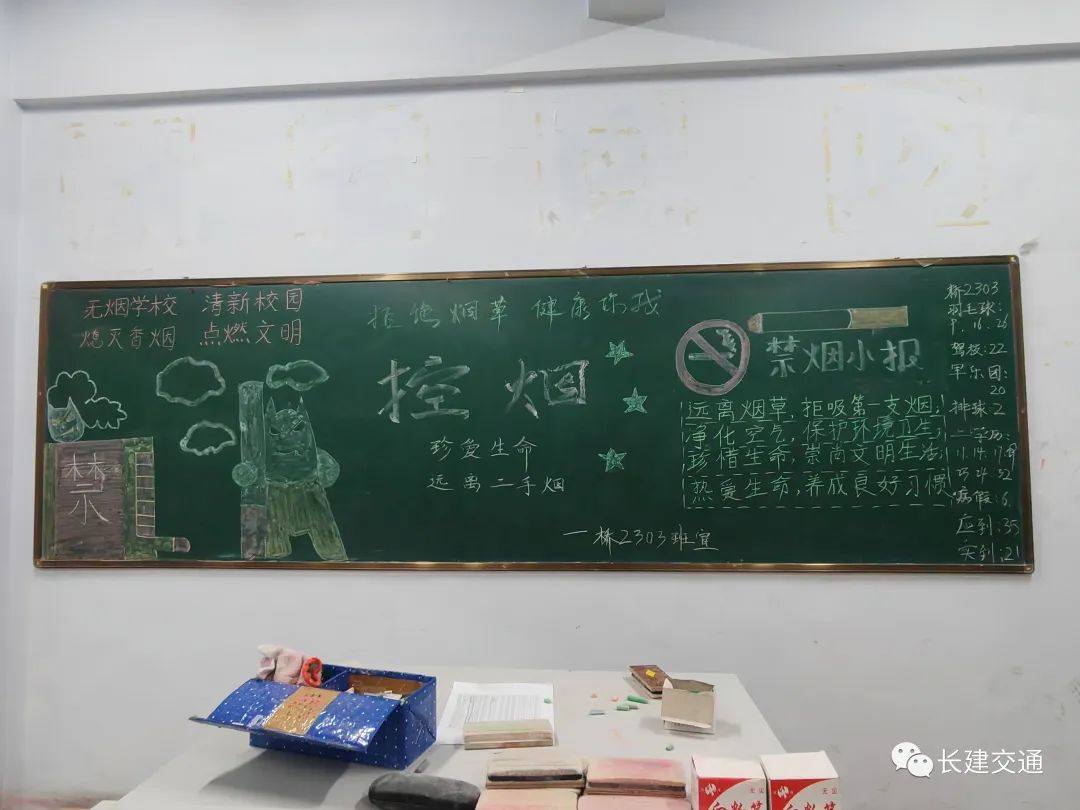 无烟学校 清新校园
熄灭香烟 点燃文明
禁
拒绝烟草 健康你我
控烟
珍爱生命
远离二手烟
一桥2303班宣
禁烟小报
远离烟草,拒吸第一支烟,
净化空气,保护环境卫生,
珍惜生命,崇尚文明生活,
热爱生命,养成良好习惯
桥2303
羽毛球:
9.16.26
驾校:22
军乐团:
20
排球2
二学历:
病假:6
应到:35
实到:21
长建交通